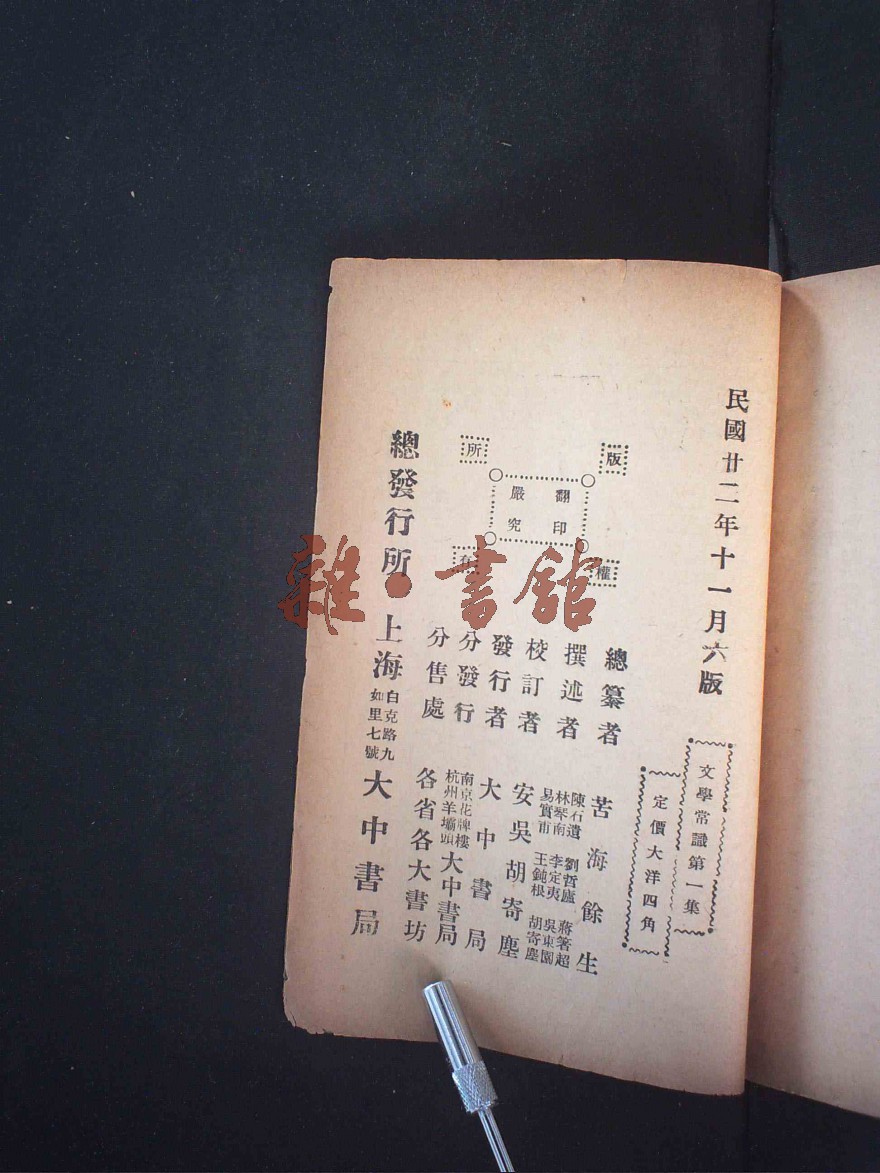 民國廿二年十一月六版
文學常識第一集
定價大洋四角
版權所有
翻印
嚴究
總纂者 苦海餘生
撰述者 陳石遺 劉哲廬 蔣箸超
林琴南 李定夷 吳東園
易實甫 王鈍根 胡寄塵
校訂者 安吳胡寄塵
發行者 大中書局
分發行 南京花牌樓
杭州羊壩頭 大中書局
分售處 各省各大書坊
總發行所 上海 白克路九
如里七號 大中書局
雜·書館